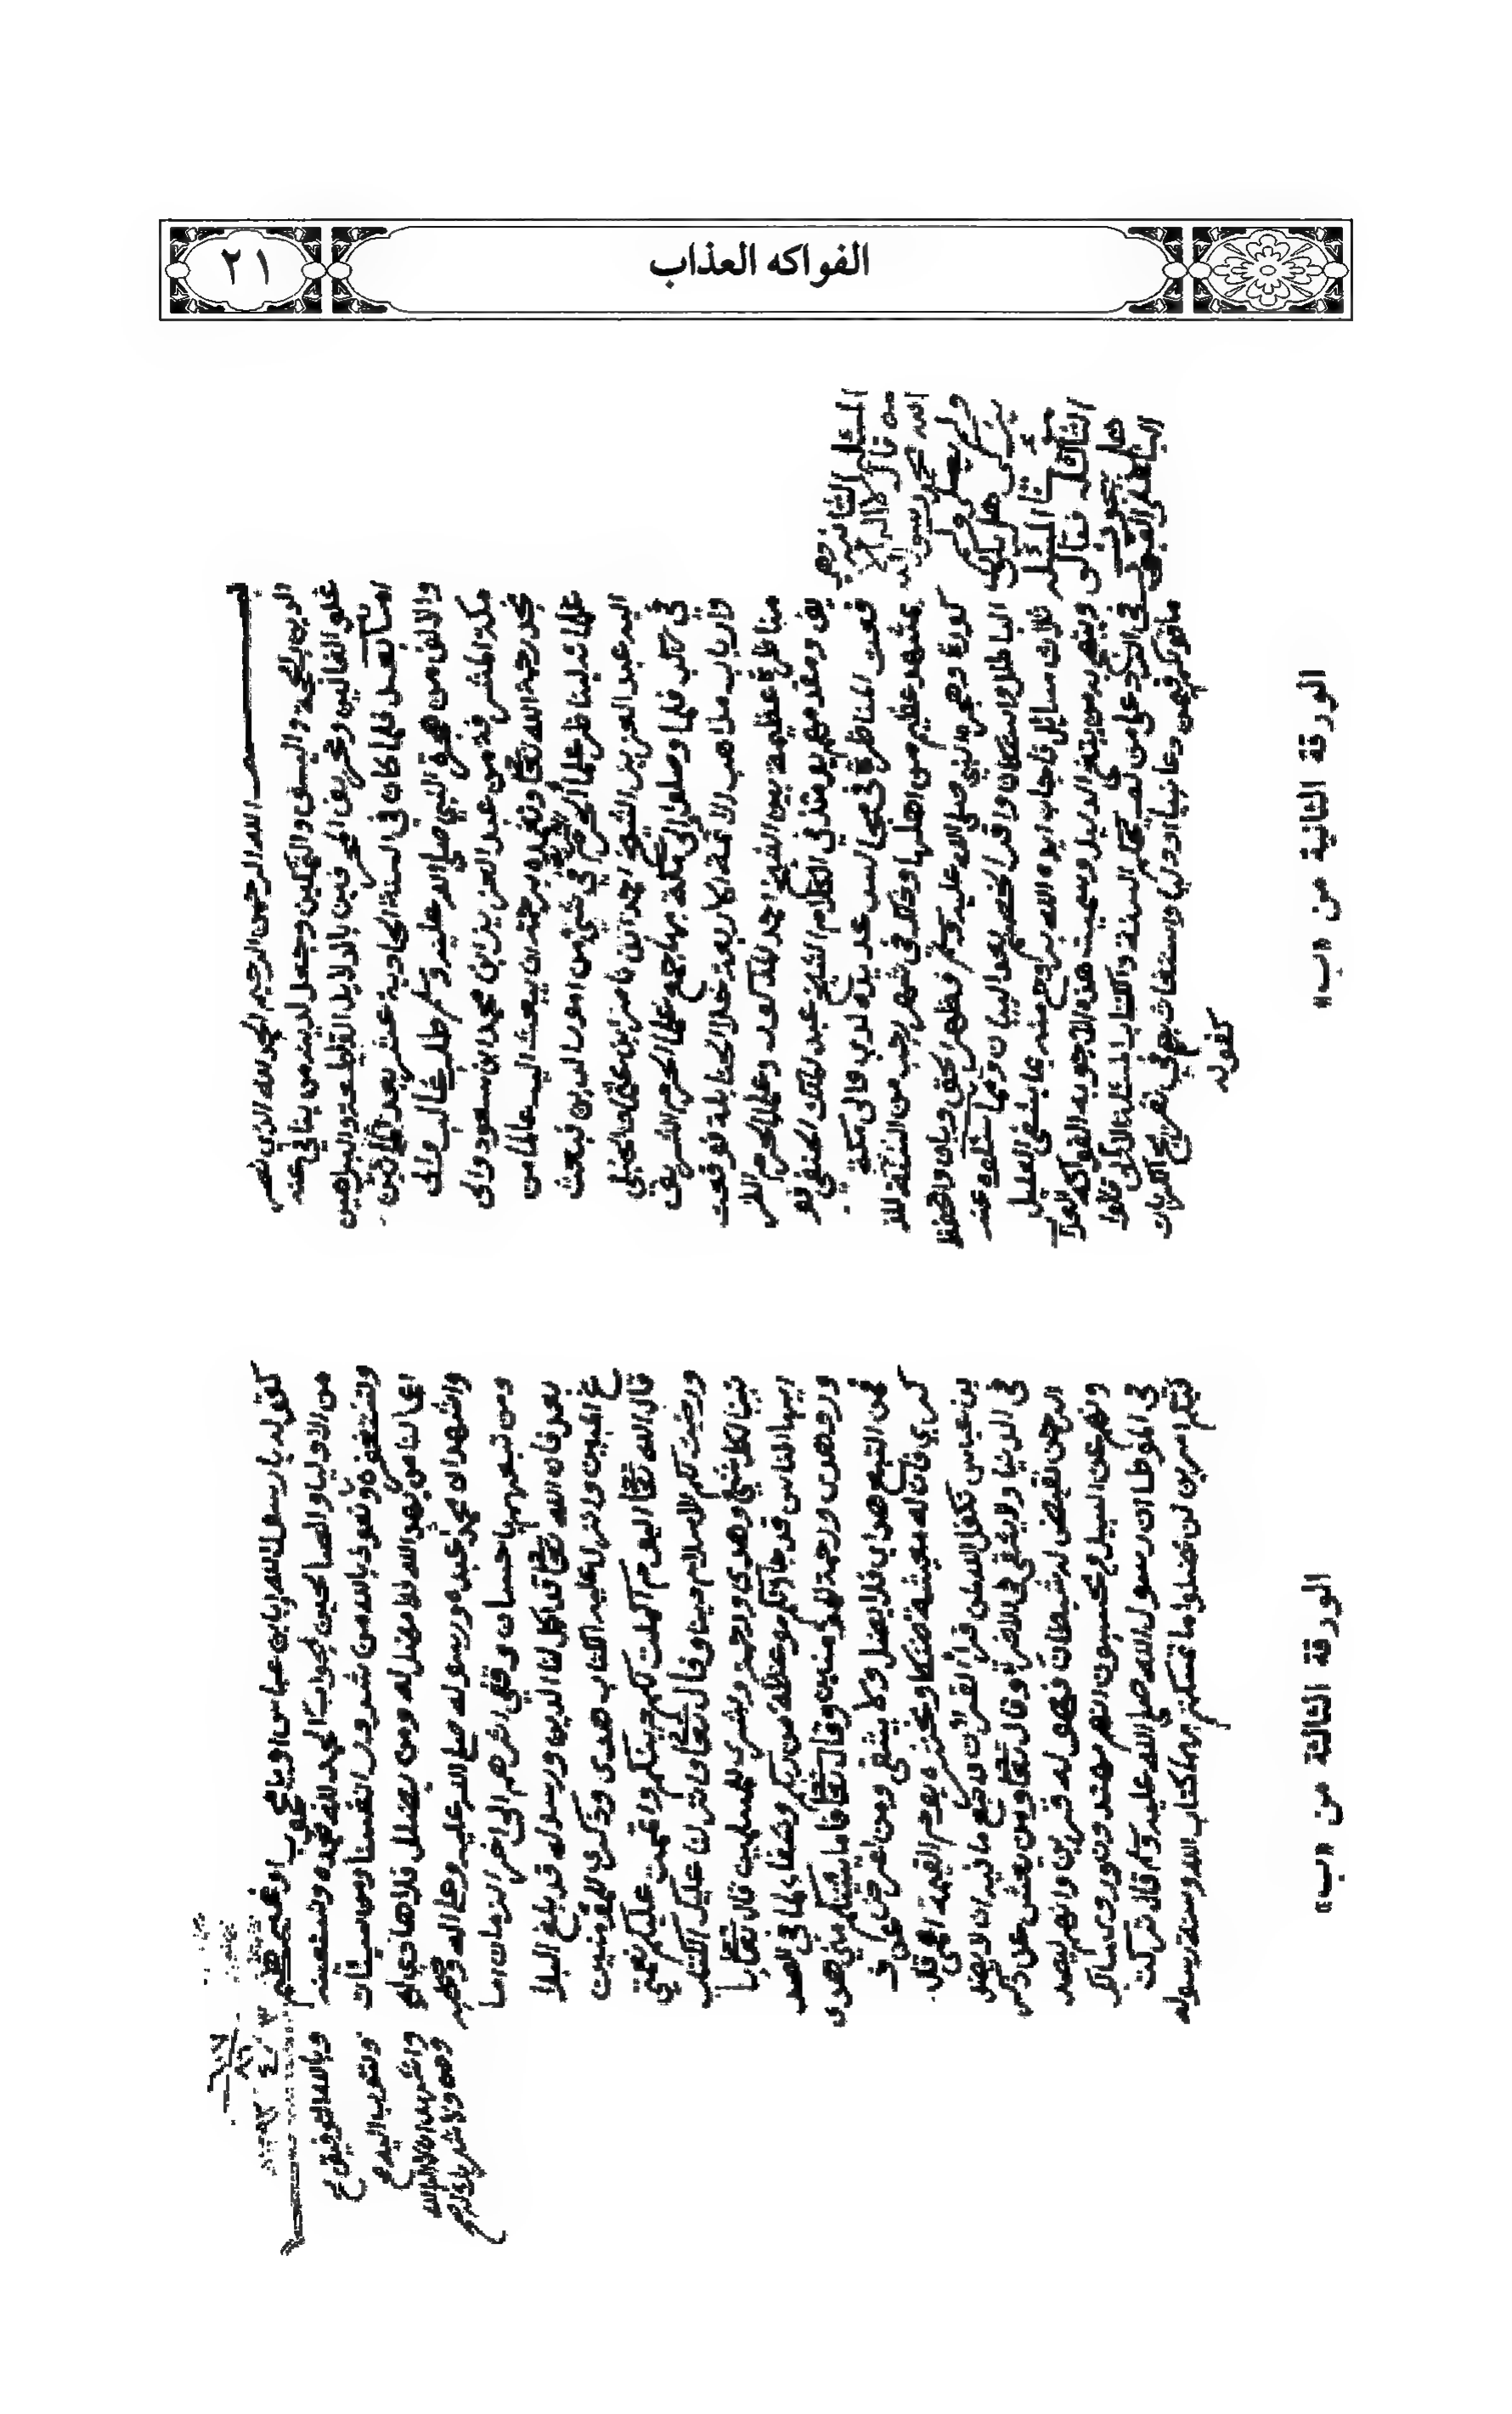 الفواكه العذاب
٢١
بسم الله الرحمن الرحيم الحمد لله الذي نصر
الدين بالحجة والسيف والتمكين وجعل لدينه من ينفي عنه
غلو الغالين وتحريف المحرفين بالدلايل القاطعة والبراهين
اما بعد فلما كان في السنة الحادية عشر بعد المائتين
والالف من هجرة النبي صلى الله عليه وسلم طلب غالب والي
مكة المشرفة من عبد العزيز بن محمد ابن سعود والي
نجد رحمه الله تعالى وتغمده برحمته ان يبعث اليه عالما من
علمائه ليناظر علماء الحرم في شيء من امور الدين فبعث
اليه عبد العزيز الشيخ احمد بن ناصر بن عثمان الحنبلي
في ركب فلما وصلوا الى مكة جمع علماء الحرم الشريف
وارباب مذاهب الائمة الاربعة خلا الحنابلة فوقعت
مناظرة عظيمة بين الشيخ احمد المذكور وعلماء الحرم الشر
يف ومقدمهم يومئذ في الكلام الشيخ عبد الملك الحنفي فو
قعت المناظرة في مجالس عديدة لدى والي مكة
بمشهد عظيم من اهلها وذلك في شهر رجب من السنة المذ
كورة وهجرة النبي صلى الله عليه وسلم فظهر الحق وبان وانخفظ
الباطل واستكان واقر الخصم بعد البيان ومما سئلوه عنه
ثلاث مسائل فاجاب ايده الله بروح منه بما يشفي العليل
ويبتهج به من يتبع الدليل وسميت هذه الاجوبة الفواكه العذاب
في الرد على من لم يحكم السنة والكتاب المسئلة الاولى قالوا
ما قولكم فيمن دعا نبيا او وليا واستغاث بهم في تفريج الكربات
كقوله
المسئلة الثانية وهي
من قال لا اله الا
الله محمد رسول الله
ولم يصل ولم
يزك هل يكون
مؤمنا المسئلة
الثالثة قالو
هل يجوز
البناء على القبور
الورقة الثانية من «ب»
كقوله يا رسول الله او يا ابن عباس او يا محجوب او غيرهم
من الاوليا والصالحين الجواب الحمد لله نحمده ونستعينه
ونستغفره ونعوذ بالله من شرور انفسنا ومن سيئات
اعمالنا من يهد الله فلا مضل له ومن يضلل فلا هادي له
واشهد ان محمدا عبده ورسوله صلى الله عليه وعلى اله وصحبه
ومن تبعهم باحسان وقفى اثرهم الى اخر الزمان اما
بعد فان الله تعالى قد اكمل لنا الدين ورسوله قد بلغ البلا
غ المبين وانزل عليه الكتاب هدى وذكرى للمؤمنين
قال الله تعالى اليوم اكملت لكم دينكم واتممت عليكم نعمتي
ورضيت لكم الاسلام دينا وقال تعالى وانزلنا عليك الكتاب
تبيانا لكل شيء وهدى ورحمة وبشرى للمسلمين قال تعالى يا
ايها الناس قد جاءتكم موعظة من ربكم وشفاء لما في الصد
ور وهدى ورحمة للمؤمنين وقال تعالى فاما يأتينكم مني هدى
فمن اتبع هداي فلا يضل ولا يشقى ومن اعرض عن ذ
كري فان له معيشة ضنكا ونحشره يوم القيمة اعمى قال
بن عباس تكفل الله لمن قرأ القرآن واتبع ما فيه ان لا يضل
في الدنيا ولا يشقى في الاخرة وقال تعالى ومن يعش عن ذكر
الرحمن نقيض له شيطانا فهو له قرين وانهم ليصد
ونهم عن السبيل ويحسبون انهم مهتدون وروى مالك
في الموطا ان رسول الله صلى الله عليه وسلم قال تركت
فيكم امرين لن تضلوا ما تمسكتم بهما كتاب الله وسنة رسوله
وبالله التوفيق
ونتوب اليه
واشهد ان لا اله الا الله
وحده لا شريك له
الورقة الثالثة من «ب»